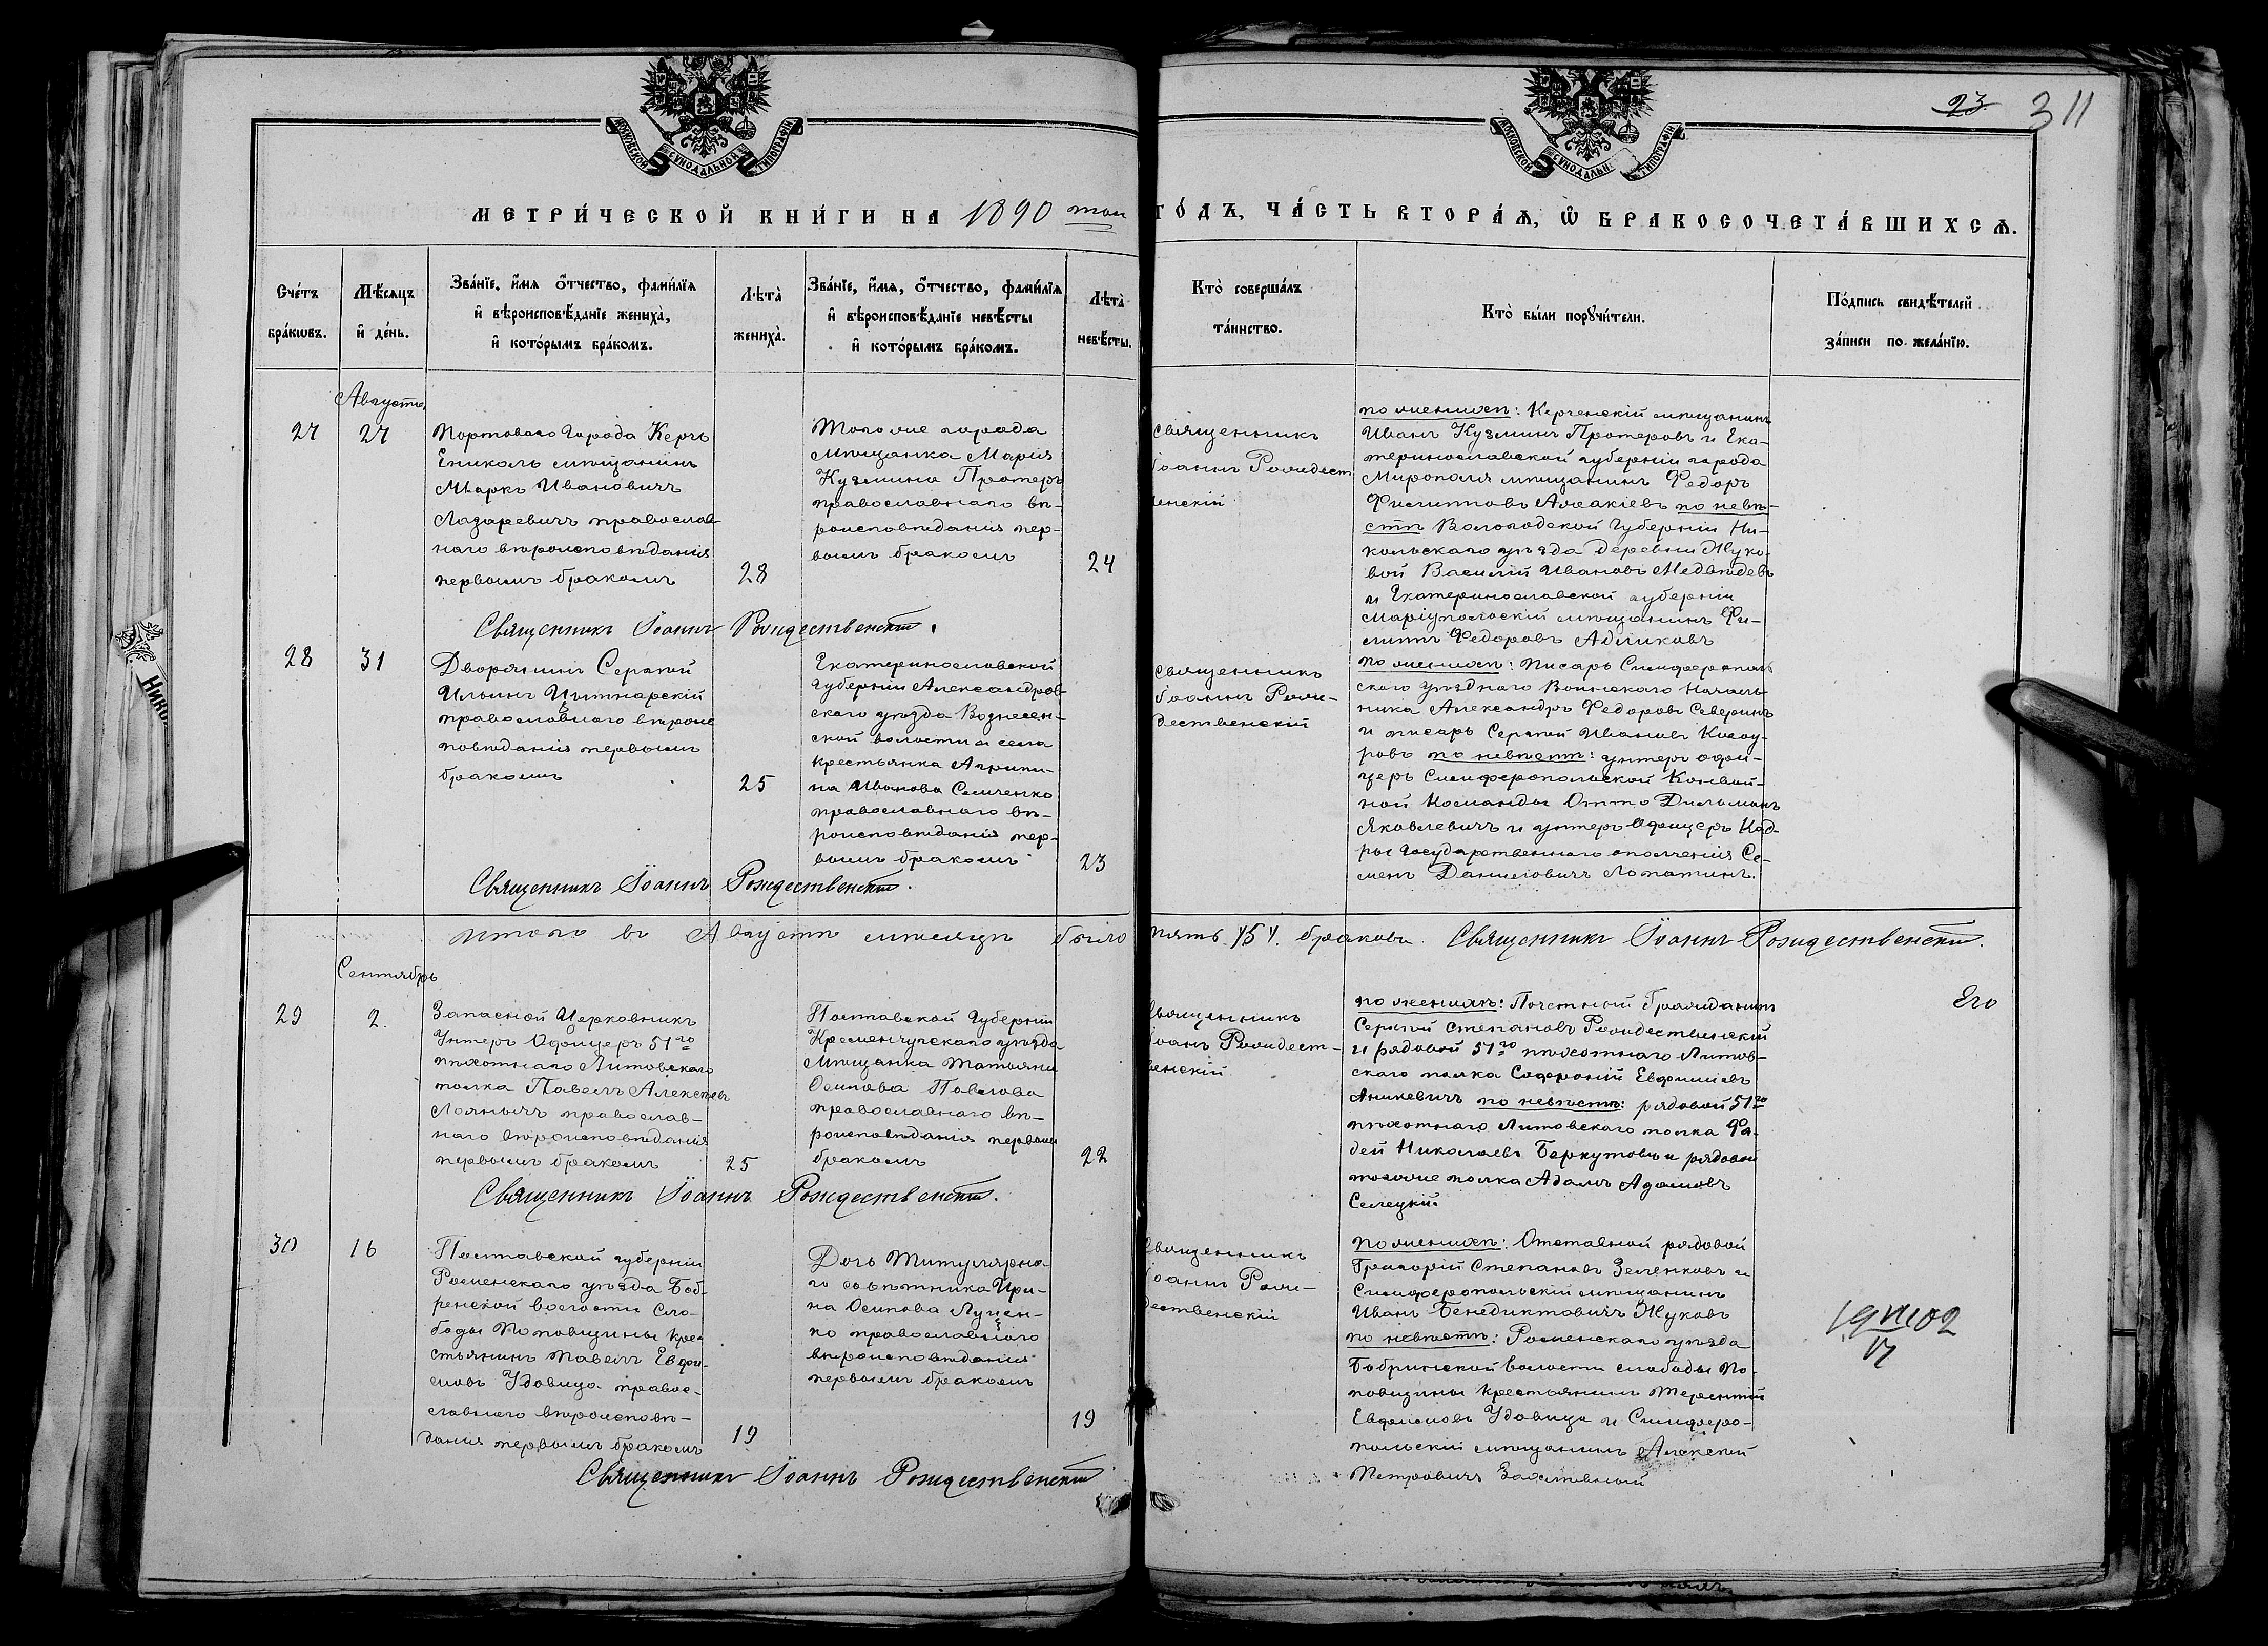 МОСКОВСКОЙ СѴНОДАЛЬНОЙ ТИПОГРАФІИ
МОСКОВСКОЙ СѴНОДАЛЬН ТИПОГРАФІИ
23 311
МЕТРИ́ЧЕСКОЙ КНИ́ГИ НА 1890 той
ГО́ДЪ, ЧА́СТЬ ВТОРА́Ѧ, Ѽ БРАКОСОЧЕТА́ВШИХСѦ.
Сче́тъ бра́кωвъ.
Мѣ́сѧцъ и҆ де́нь.
Зва́нїе, и҆́мѧ ѻ҆́тчество, фами́лїѧ
и҆ вѣроисповѣ́данїе жениха̀,
и҆ кото́рымъ бра́комъ.
Лѣта̀ жениха̀.
Зва́нїе, и҆́мѧ, ѻ҆́тчество, фами́лїѧ
и҆ вѣроисповѣ́данїе невѣ́сты
и҆ кото́рымъ бра́комъ.
Лѣта̀ невѣ́сты.
Кто̀ соверша́лъ та́инство.
Кто̀ бы́ли порꙋчи́тели.
По́дпись свидѣ́телей
за́писи по жела́нїю.
Августа
27
27
Портоваго города Керчь
Ениколь мѣщанинъ
Маркъ Ивановичъ
Лазаревичъ православ
наго вѣроисповѣданія
первымъ бракомъ
28
Тогоже города
мѣщанка Марія
Кузмина Протеръ
православнаго вѣ-
роисповѣданія пер-
вымъ бракомъ
24
Священникъ
Іоаннъ Рождест
венскій
по женихѣ: Керченскій мѣщанинъ
Иванъ Кузминъ Протеровъ и Ека-
теринославской губерніи города
Мирополя мѣщанинъ Федоръ
Филиповъ по невѣ-
стѣ Вологодской Губерніи Ни-
кольскаго уѣзда деревни Жуко-
вой Василій Ивановъ Медвѣдевъ
и Екатеринославской губерніи
Маріупольскій мѣщанинъ Фи-
липъ Федоровъ
Священникъ Іоаннъ Рождественскій.
28
31
Дворянинъ Сергѣй
Ильинъ
православнаго вѣроис
повѣданія первымъ
бракомъ
25
Екатеринославской
Губерніи Александров-
скаго уѣзда Вознесен-
ской волости и села
крестьянка Агрипи-
на Иванова Семченко
православнаго вѣ-
роисповѣданія пер-
вымъ бракомъ
23
Священникъ
Іоаннъ Рож-
дественскій
по женихѣ: писарь Симферополь
скаго уѣзднаго Воинскаго Началь-
ника Александръ Федоровъ Северинъ
и писарь Сергѣй Ивановъ
по невѣстѣ: унтеръ офи-
церъ Симферопольской Конвой-
ной Команды Отто Дильманъ
Яковлевичъ и унтеръ Офицеръ Кад-
ры Государственнаго ополченія Се-
менъ Даниловичъ Лопатинъ.
Священникъ Іоаннъ Рождественскій.
Итого въ Августѣ мѣсяцѣ было пять /5/. браковъ. Священникъ Іоаннъ Рождественскій.
Сентябрь
29
2.
Запасной Церковникъ
Унтеръ Офицеръ 51го
пѣхотнаго Литовскаго
полка Павелъ Алексѣевъ
православ-
наго вѣроисповѣданія
первымъ бракомъ
25
Полтавской Губерніи
Кременчугскаго уѣзда
мѣщанка Татьяна
Осипова Павлова
православнаго вѣ-
роисповѣданія первымъ
бракомъ
22
Священникъ
Іоанъ Рождест-
венскій
по женихѣ: Почетный Гражданинъ
Сергѣй Степановъ Рождественскій
и рядовой 51го пѣхотнаго Литов-
скаго полка Софроній Евфиміевъ
Аникевичъ по невѣстѣ: рядовой 51го
пѣхотнаго Литовскаго полка Фа-
дей Николаевъ Беркутовъ и рядовой
тогоже полка Адамъ Адамовъ
Селецкій.
Его
Священникъ Іоаннъ Рождественскій.
30
16
Полтавской губерніи
Роменскаго уѣзда Боб-
ренской волости Сло-
боды Поповщины кре-
стьянинъ Павелъ Евфи-
мовъ Удовица правос-
лавнаго вѣроисповѣ-
данія первымъ бракомъ
19
Дочь Титулярна-
го совѣтника Ири-
на Осипова Луцен-
ко православнаго
вѣроисповѣданія
первымъ бракомъ
19
Священникъ
Іоаннъ Рож-
дественскій
по женихѣ: Отставной рядовой
Григорій Степановъ Зеленковъ и
Симферопольскій мѣщанинъ
Иванъ Бенедиктовичъ Жуковъ
по невѣстѣ: Роменскаго уѣзда
Бобринской волости слободы По-
повщины крестьянинъ Терентій
Евфимовъ Удовица и Симферо-
польскій мѣщанинъ Алексѣй
Петровичъ
Священникъ Іоаннъ Рождественскій